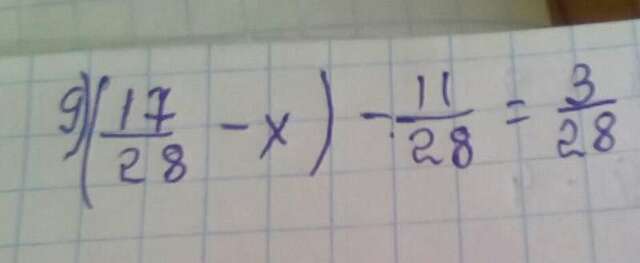 9) (17/28 - x) - 11/28 = 3/28